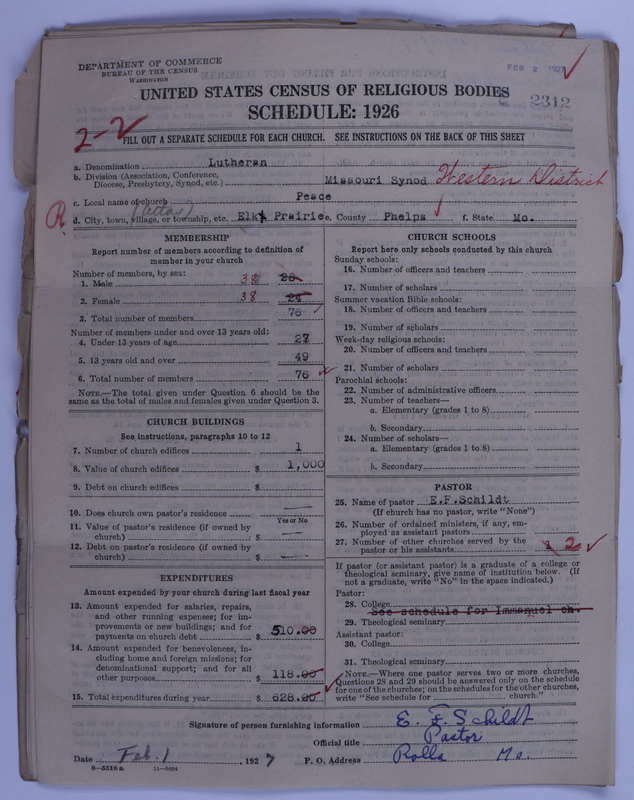 DEPARTMENT OF COMMERCE
BUREAU OF THE CENSUS
WASHINGTON
FEB 2 1927
UNITED STATES CENSUS OF RELIGIOUS BODIES
SCHEDULE: 1926
2312
2-2
FILL OUT A SEPARATE SCHEDULE FOR EACH CHURCH. SEE INSTRUCTIONS ON THE BACK OF THIS SHEET
a. Denomination Lutheran
b. Division (Association, Conference, Diocese, Presbytery, Synod, etc.) Missouri Synod Western District
c. Local name of church Peace
R d. City, town, village, or township, etc. Elk Prairie e. County Phelps f. State Mo.
MEMBERSHIP
Report number of members according to definition of
member in your church
Number of members, by sex:
1. Male 38
2. Female 38 24
3. Total number of members 76
Number of members under and over 13 years old:
4. Under 13 years of age 27
5. 13 years old and over 49
6. Total number of members 76
NOTE.—The total given under Question 6 should be the
same as the total of males and females given under Question 3.
CHURCH BUILDINGS
See instructions, paragraphs 10 to 12
7. Number of church edifices 1
8. Value of church edifices $ 1,000
9. Debt on church edifices $
10. Does church own pastor's residence —
Yes or No
11. Value of pastor's residence (if owned by
church) $ —
12. Debt on pastor's residence (if owned by
church) $ —
EXPENDITURES
Amount expended by your church during last fiscal year
13. Amount expended for salaries, repairs,
and other running expenses; for im-
provements or new buildings; and for
payments on church debt $ 510.00
14. Amount expended for benevolences, in-
cluding home and foreign missions; for
denominational support; and for all
other purposes 118.00
15. Total expenditures during year $ 628.00
CHURCH SCHOOLS
Report here only schools conducted by this church
Sunday schools:
16. Number of officers and teachers
17. Number of scholars
Summer vacation Bible schools:
18. Number of officers and teachers
19. Number of scholars
Week-day religious schools:
20. Number of officers and teachers
21. Number of scholars
Parochial schools:
22. Number of administrative officers
23. Number of teachers—
a. Elementary (grades 1 to 8)
b. Secondary
24. Number of scholars—
a. Elementary (grades 1 to 8)
b. Secondary
PASTOR
25. Name of pastor E.F.Schildt
(If church has no pastor, write "None")
26. Number of ordained ministers, if any, em-
ployed as assistant pastors
27. Number of other churches served by the
pastor or his assistants 1 2
If pastor (or assistant pastor) is a graduate of a college or
theological seminary, give name of institution below. (If
not a graduate, write "No" in the space indicated.)
Pastor:
28. College
See schedule for Immanuel ch.
29. Theological seminary
Assistant pastor:
30. College
31. Theological seminary
NOTE.—Where one pastor serves two or more churches,
Questions 28 and 29 should be answered only on the schedule
for one of the churches; on the schedules for the other churches,
write "See schedule for church."
Signature of person furnishing information E. F. Schildt
Official title Pastor
Date Feb. 1, 1927 P. O. Address Rolla Mo.
8—5518a 11—9054